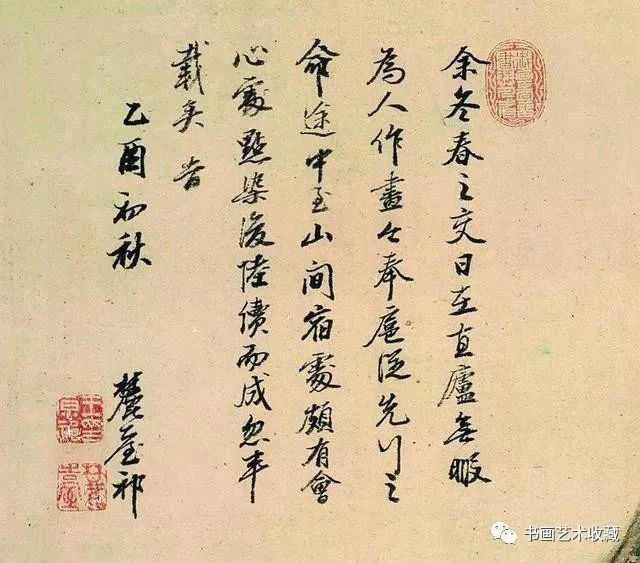 余冬春之交日在直廬無暇
為人作畫今奉扈從先行之
命途中至山間宿處頗有會
心處點染後陸續而成忽半
載矣 旹
乙酉初秋 麓臺祁
书画艺术收藏